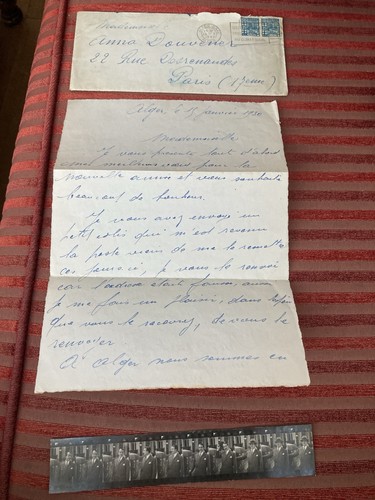 Mademoiselle
Anna
22 Rue
Paris
Alger le 15 janvier
Mademoiselle
Je vous présente tout d'abord
mes meilleurs vœux pour la
nouvelle année et vous souhaite
beaucoup de bonheur.
Je vous avez envoyé un
petit colis qui m'est revenu
la poste vient de me le remettre
ces jours ci, je vous le renvoi
car l'adresse était fausse, aussi
je me fais un plaisir, dans
que vous le recevrez, de vous le
renvoyer
A Alger nous sommes en